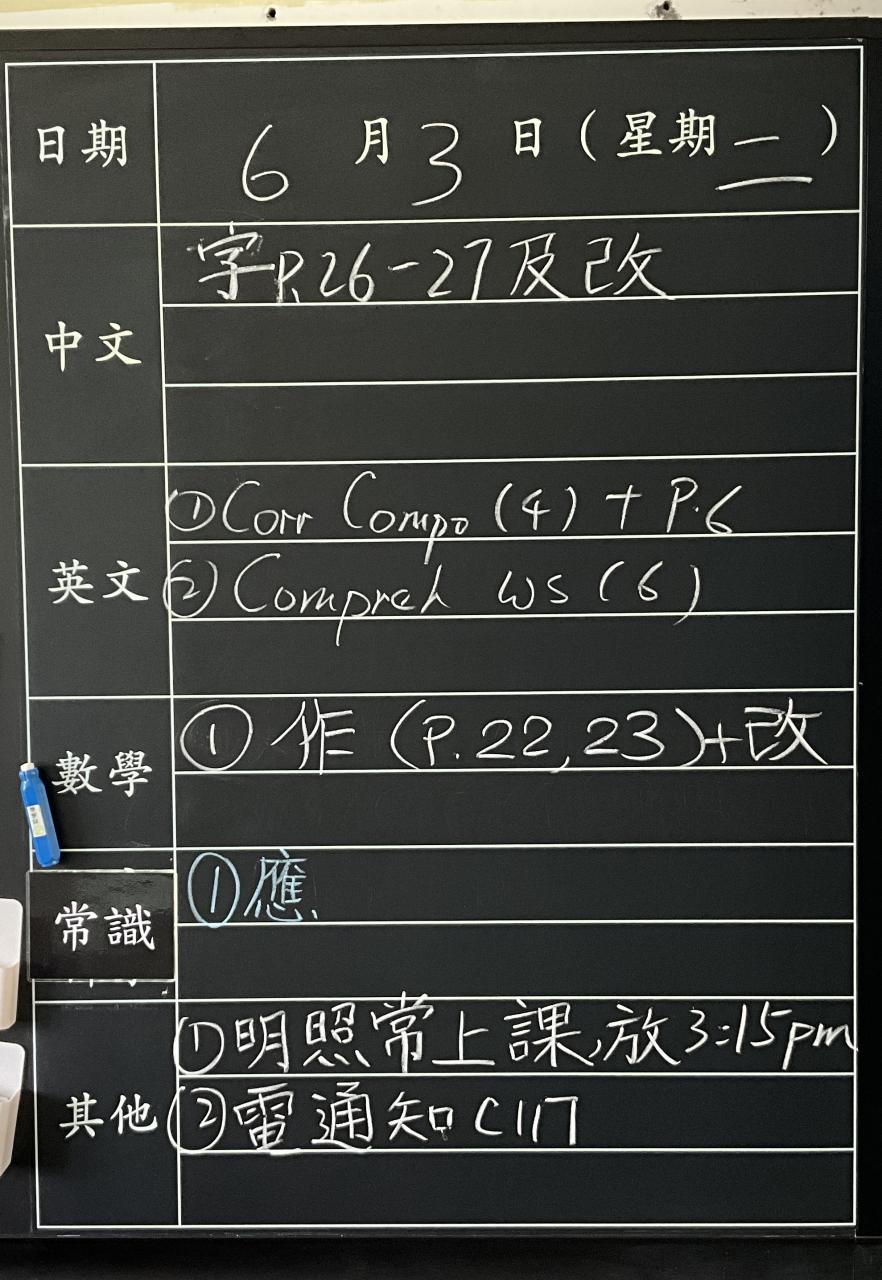 日期 6月3日(星期二)
中文 字P.26-27及改
英文 ①Corr Compo (4) + P.6
②Compreh WS (6)
數學 ① 作 (P.22,23)+改
常識 ①應
其他 ①明照常上課,放3:15pm
②電通知C117